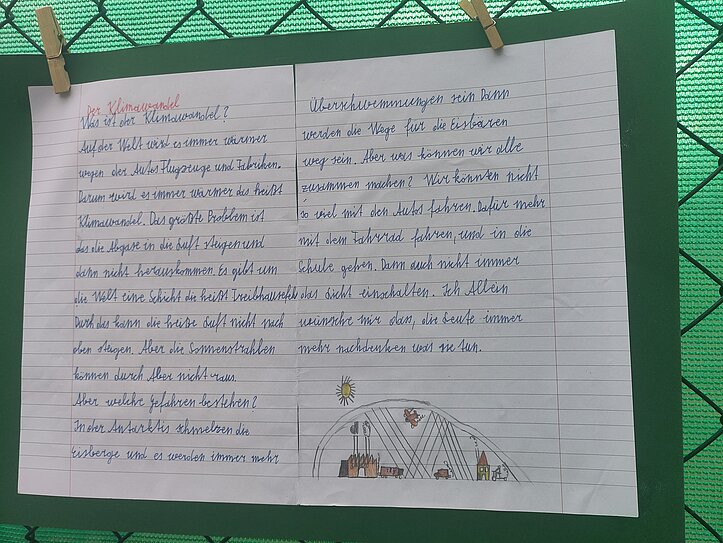 Der Klimawandel
Was ist der Klimawandel?
Auf der Welt wird es immer wärmer
wegen der Autos Flugzeuge und Fabriken.
Darum wird es immer wärmer das heißt
Klimawandel. Das größte Problem ist
das die Abgase in die Luft steigen und
dann nicht herauskommen. Es gibt um
die Welt eine Schicht die heißt Treibhausefeb
Durch das kann die heiße Luft nicht nach
oben steigen. Aber die Sonnenstrahlen
können durch Aber nicht raus.
Aber welche Gefahren bestehen?
In der Antarktis schmelzen die
Eisberge und es werden immer mehr
Überschwemmungen sein Dann
werden die Wege für die Eisbären
weg sein. Aber was können wir alle
zusammen machen? Wir könnten nicht
so viel mit den Autos fahren. Dafür mehr
mit dem Fahrrad fahren, und in die
Schule gehen. Dann auch nicht immer
das Licht einschalten. Ich Allein
wünsche mir dass, die Leute immer
mehr nachdenken was sie tun.